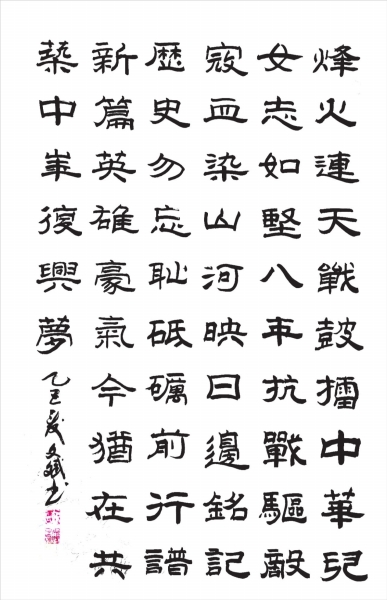 烽火連天戰鼓擂中華兒
女志如堅八年抗戰驅敵
寇血染山河映日邊銘記
歷史勿忘恥砥礪前行譜
新篇英雄豪氣今猶在共
築中華復興夢
乙巳夏文斌书